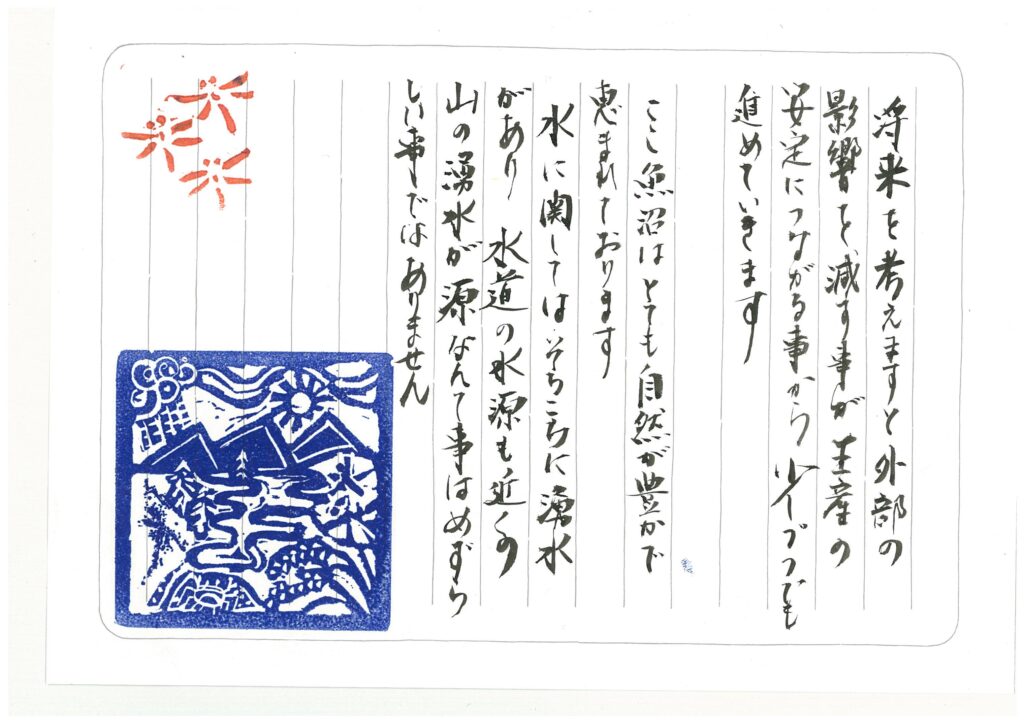 将来を考えますと外部の
影響を減す事が生産の
安定につながる事から少しづつでも
進めていきます
ここ魚沼はとても自然が豊かで
恵まれております
水に関してはそちこちに湧水
があり 水道の水源も近くの
山の湧水が源なんて事はめずら
しい事ではありません